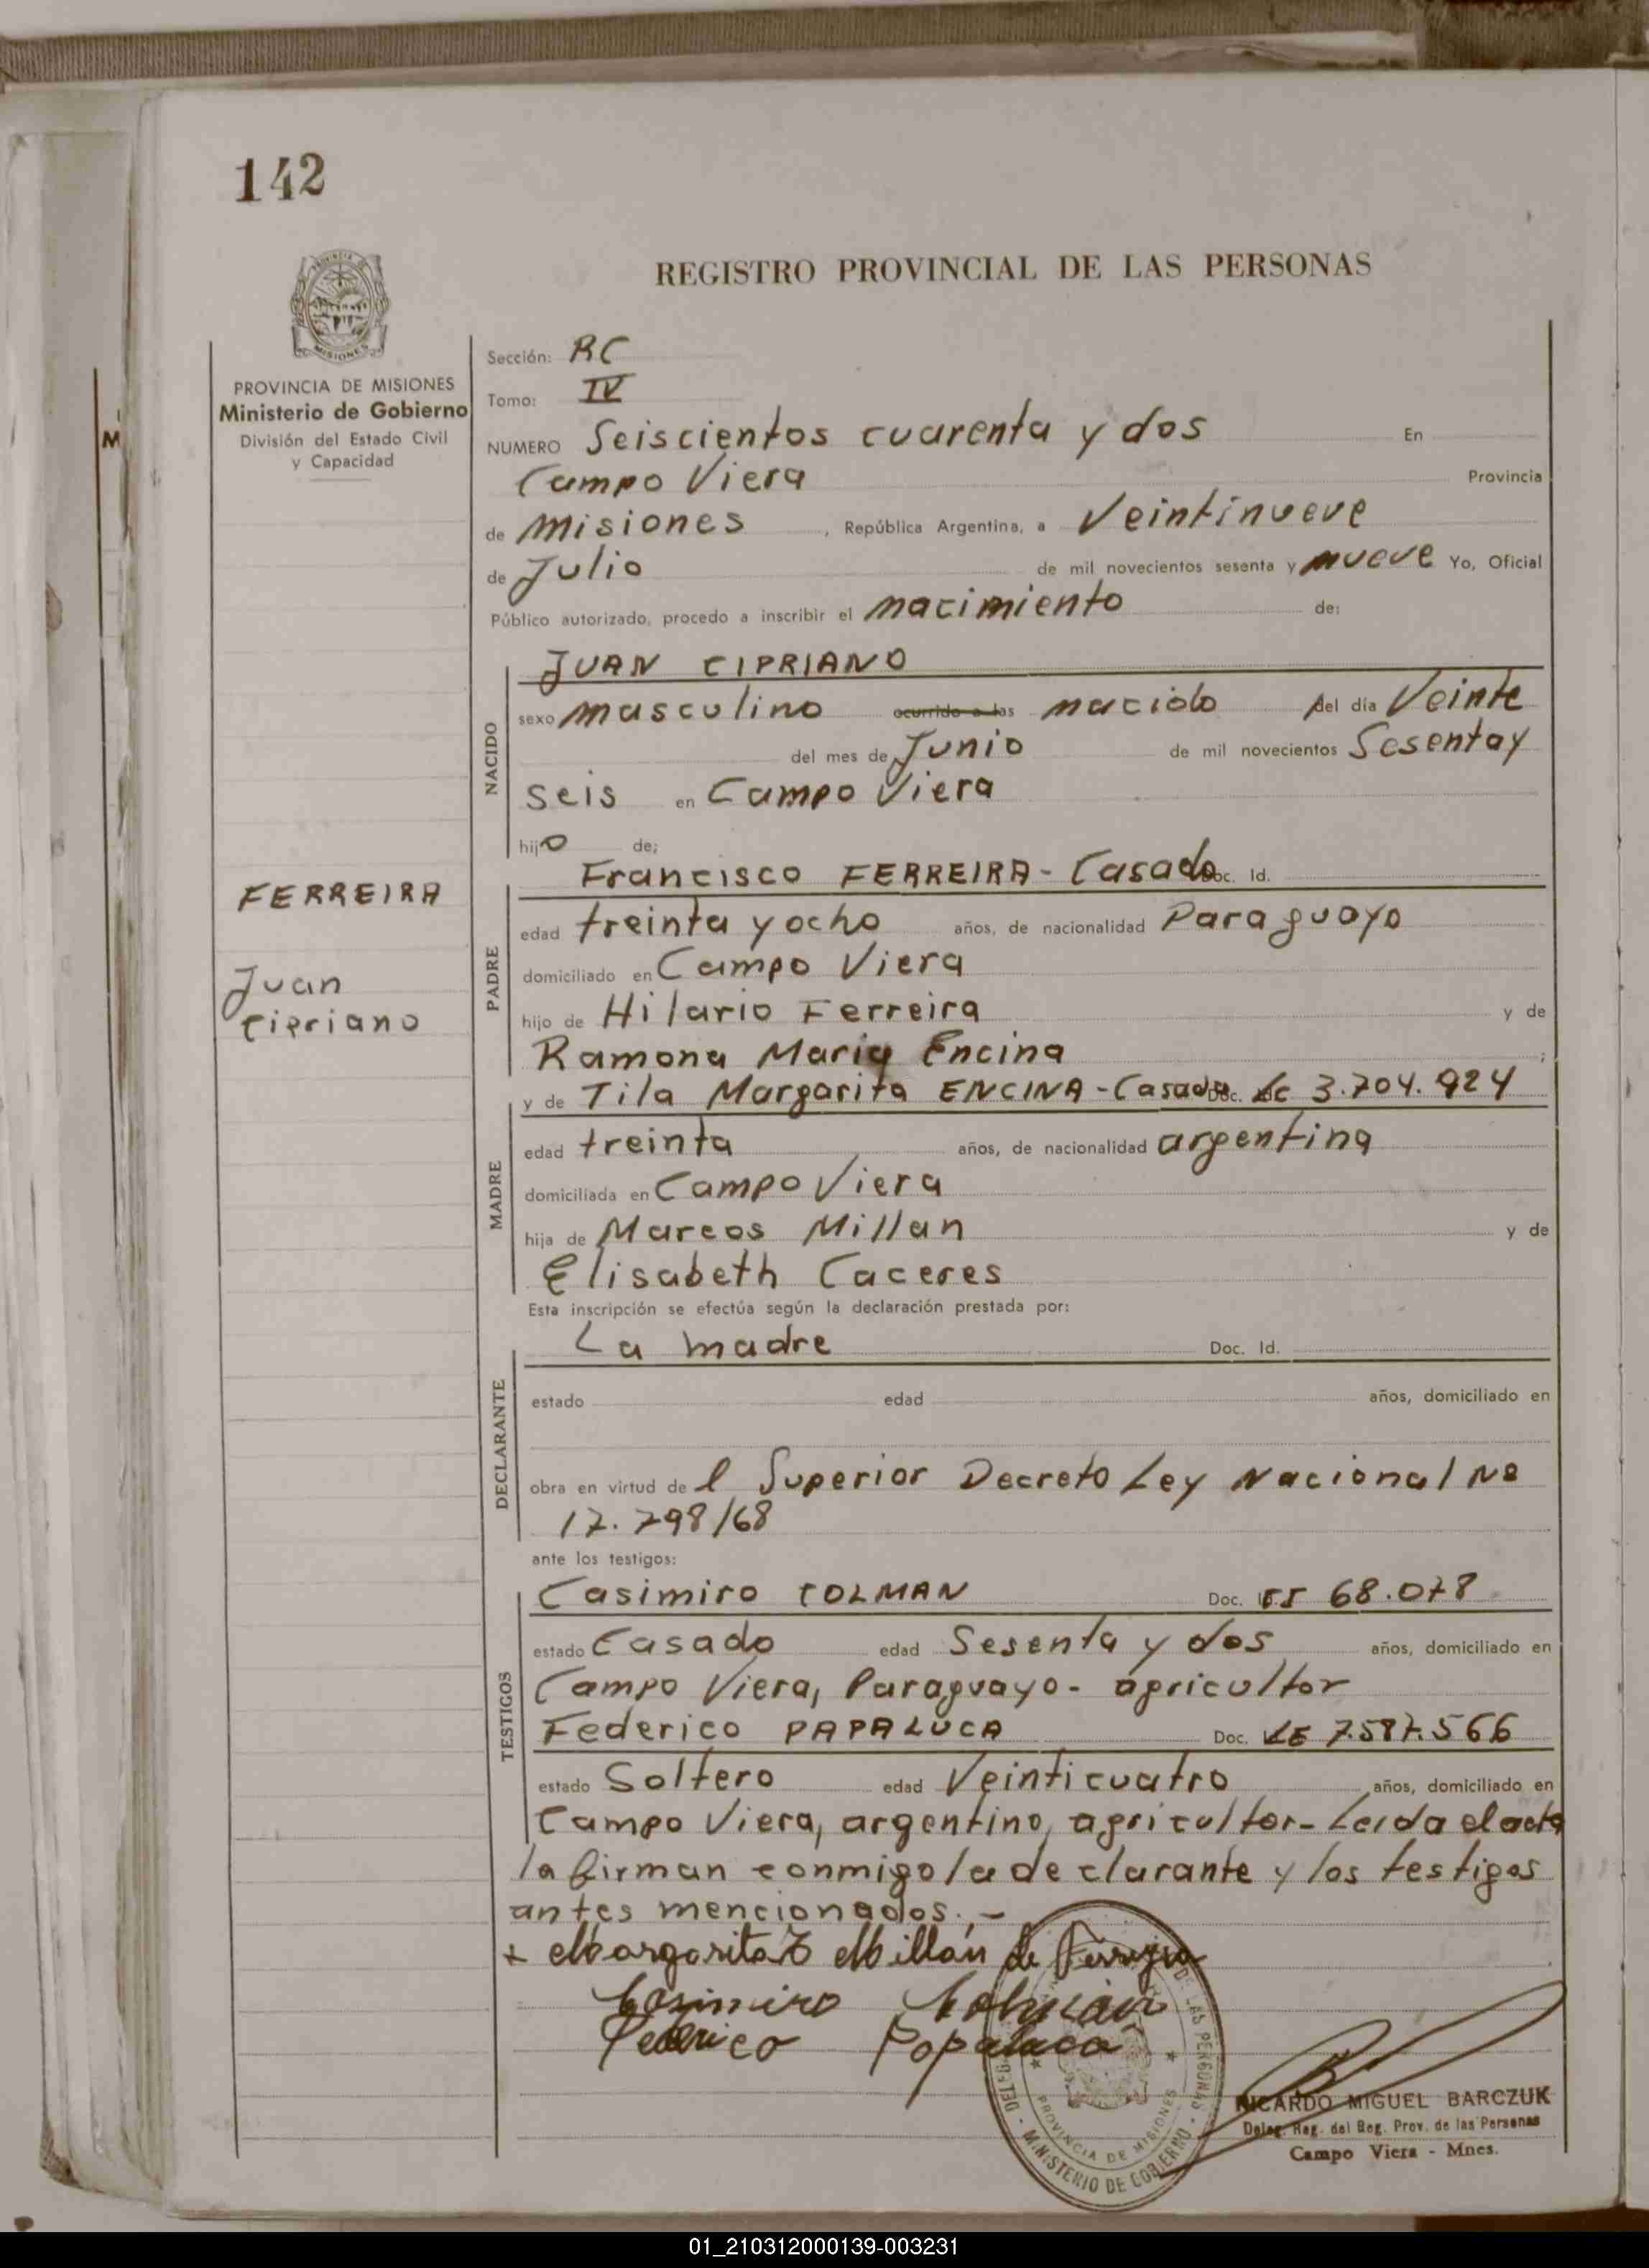 142
REGISTRO PROVINCIAL DE LAS PERSONAS
PROVINCIA DE MISIONES
Ministerio de Gobierno
División del Estado Civil
y Capacidad
Sección: RC
Tomo: IV
NUMERO Seiscientos cuarenta y dos En
Campo Viera Provincia
de Misiones , República Argentina, a Veintinueve
de Julio de mil novecientos sesenta y nueve Yo, Oficial
Público autorizado, procedo a inscribir el nacimiento de:
JUAN CIPRIANO
NACIDO
sexo masculino ocurrido a las nacido del día Veinte
del mes de Junio de mil novecientos Sesenta y
seis en Campo Viera
hijo de;
FERREIRA
Juan
Cipriano
Francisco FERREIRA - Casado Doc. Id.
PADRE
edad treinta y ocho años, de nacionalidad Paraguayo
domiciliado en Campo Viera
hijo de Hilario Ferreira y de
Ramona Maria Encina ;
y de Tila Margarita ENCINA - Casada Doc. LC 3.704.924
MADRE
edad treinta años, de nacionalidad argentina
domiciliada en Campo Viera
hija de Marcos Millan y de
Elisabeth Caceres
Esta inscripción se efectúa según la declaración prestada por:
La madre Doc. Id.
DECLARANTE
estado edad años, domiciliado en
obra en virtud de l Superior Decreto Ley Nacional Nº
17.798/68
ante los testigos:
Casimiro COLMAN Doc. 68.078
TESTIGOS
estado Casado edad Sesenta y dos años, domiciliado en
Campo Viera, Paraguayo - agricultor
Federico PAPALUCA Doc. LE 7.587.566
estado Soltero edad Veinticuatro años, domiciliado en
Campo Viera, argentino, agricultor - Leida el acta
la firman conmigo la declarante y los testigos
antes mencionados.-
+ Margarita T Millán de Ferreira
Casimiro Colmán
Federico Papaluca
PROVINCIA DE MISIONES
MINISTERIO DE GOBIERNO
DE LAS PERSONAS
RICARDO MIGUEL BARCZUK
Deleg. Reg. del Reg. Prov. de las Personas
Campo Viera - Mnes.
01_210312000139-003231